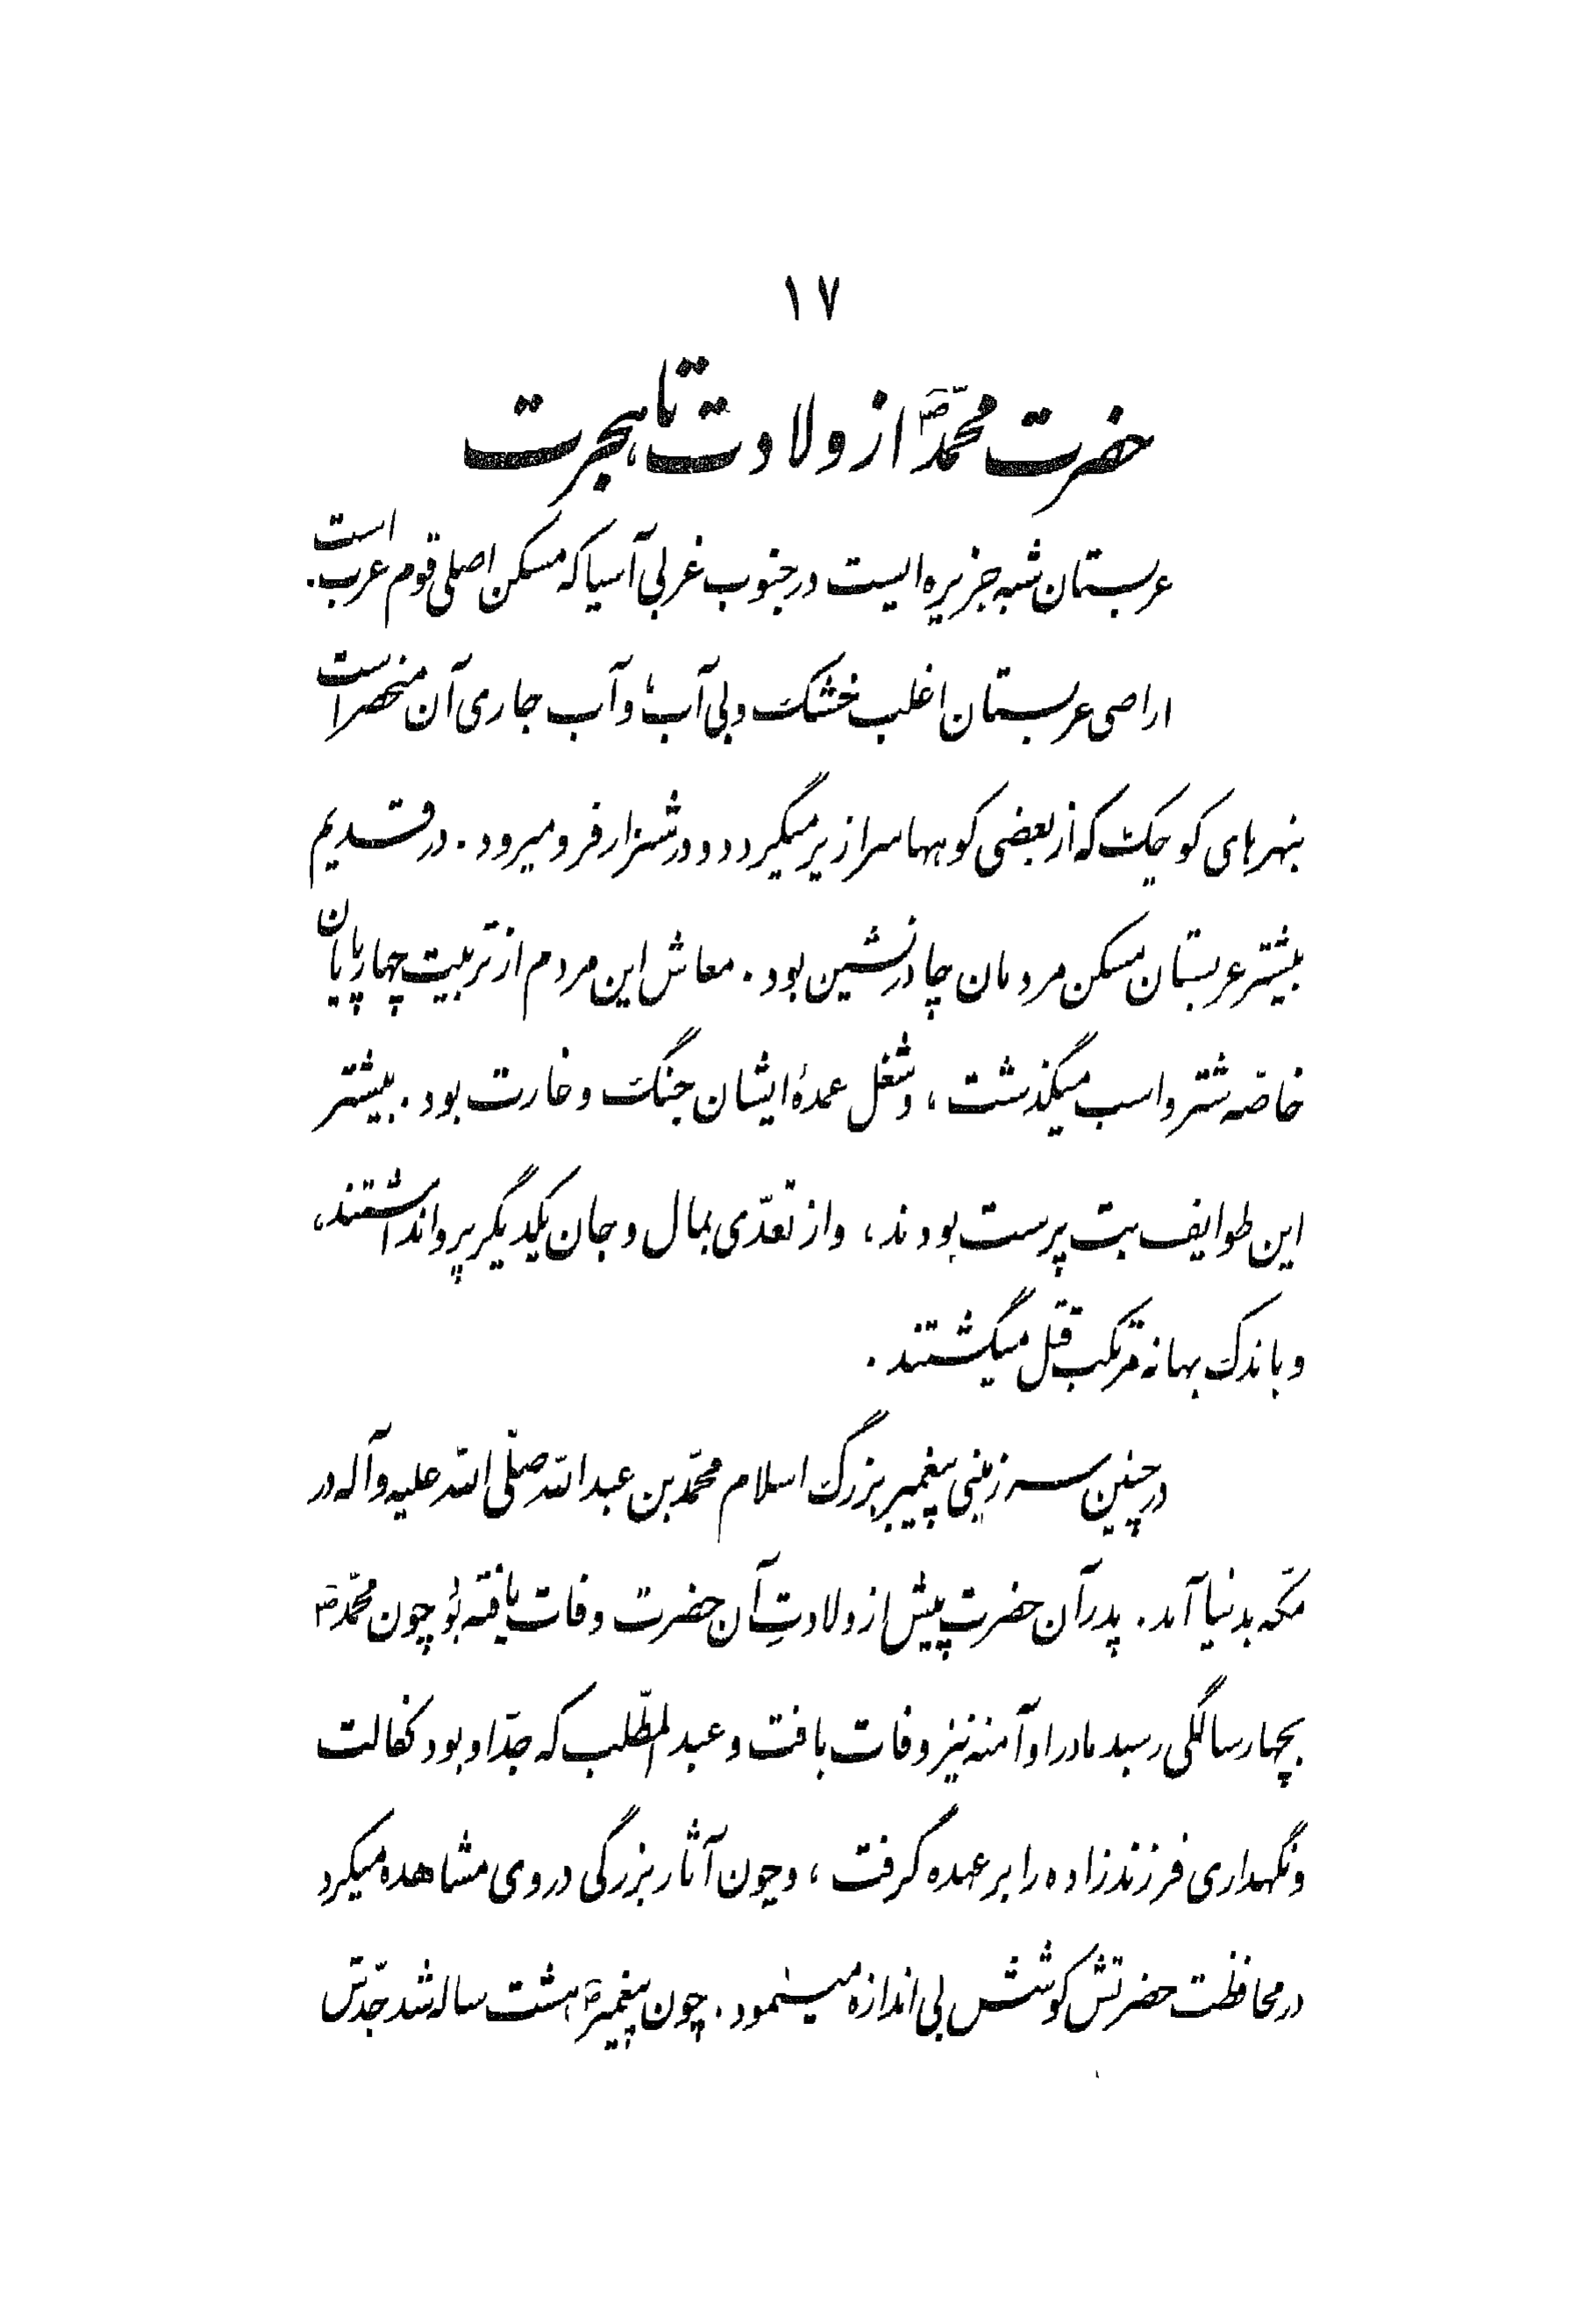 ۱۷
حضرت محمّد ص از ولادت تا هجرت
عربستان شبه جزیره ایست در جنوب غربی آسیا که مسکن اصلی قوم عرب است.
اراضی عربستان اغلب خشک و بی آب؛ و آب جاری آن منحصر است
بنهرهای کوچک که از بعضی کوهها سرازیر میگردد و در شنزار فرو میرود. در قدیم
بیشتر عربستان مسکن مردمان چادرنشین بود. معاش این مردم از تربیت چهارپایان
خاصّه شتر و اسب میگذشت، و شغل عمدهٔ ایشان جنگ و غارت بود. بیشتر
این طوایف بت پرست بودند، و از تعدّی بمال و جان یکدیگر پروا نداشتند،
و باندک بهانه مرتکب قتل میگشتند.
در چنین سرزمینی پیغمبر بزرگ اسلام محمّد بن عبدالله صلّی الله علیه و آله در
مکّه بدنیا آمد. پدر آن حضرت پیش از ولادتِ آن حضرت وفات یافته بود چون محمّد ص
بچهار سالگی رسید مادر او آمنه نیز وفات یافت و عبدالمطّلب که جدّ او بود کفالت
و نگهداری فرزندزاده را بر عهده گرفت، و چون آثار بزرگی در وی مشاهده میکرد
در محافظت حضرتش کوشش بی اندازه مینمود. چون پیغمبر ص هشت ساله شد جدّش